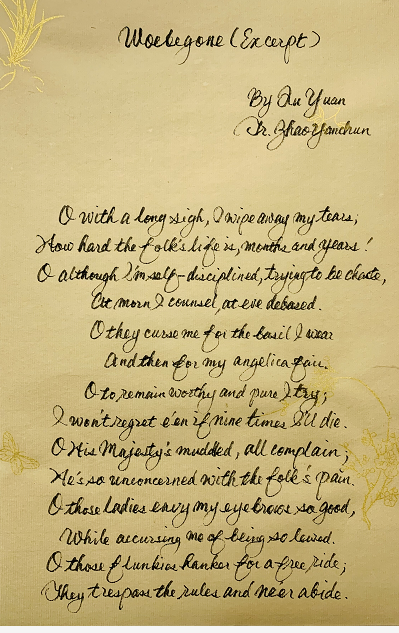 Woebegone (Excerpt)
By Qu Yuan
Tr. Zhao Yanchun
O with a long sigh, I wipe away my tears;
How hard the folk's life is, months and years!
O although I'm self-disciplined, trying to be chaste,
At morn I counsel, at eve debased.
O they curse me for the basil I wear
And then for my angelica fair.
O to remain worthy and pure I try;
I won't regret e'en if nine times I'll die.
O His Majesty's mudded, all complain;
He's so unconcerned with the folk's pain.
O those ladies envy my eyebrows so good,
While accursing me of being so lewd.
O those flunkies hanker for a free ride;
They trespass the rules and ne'er abide.